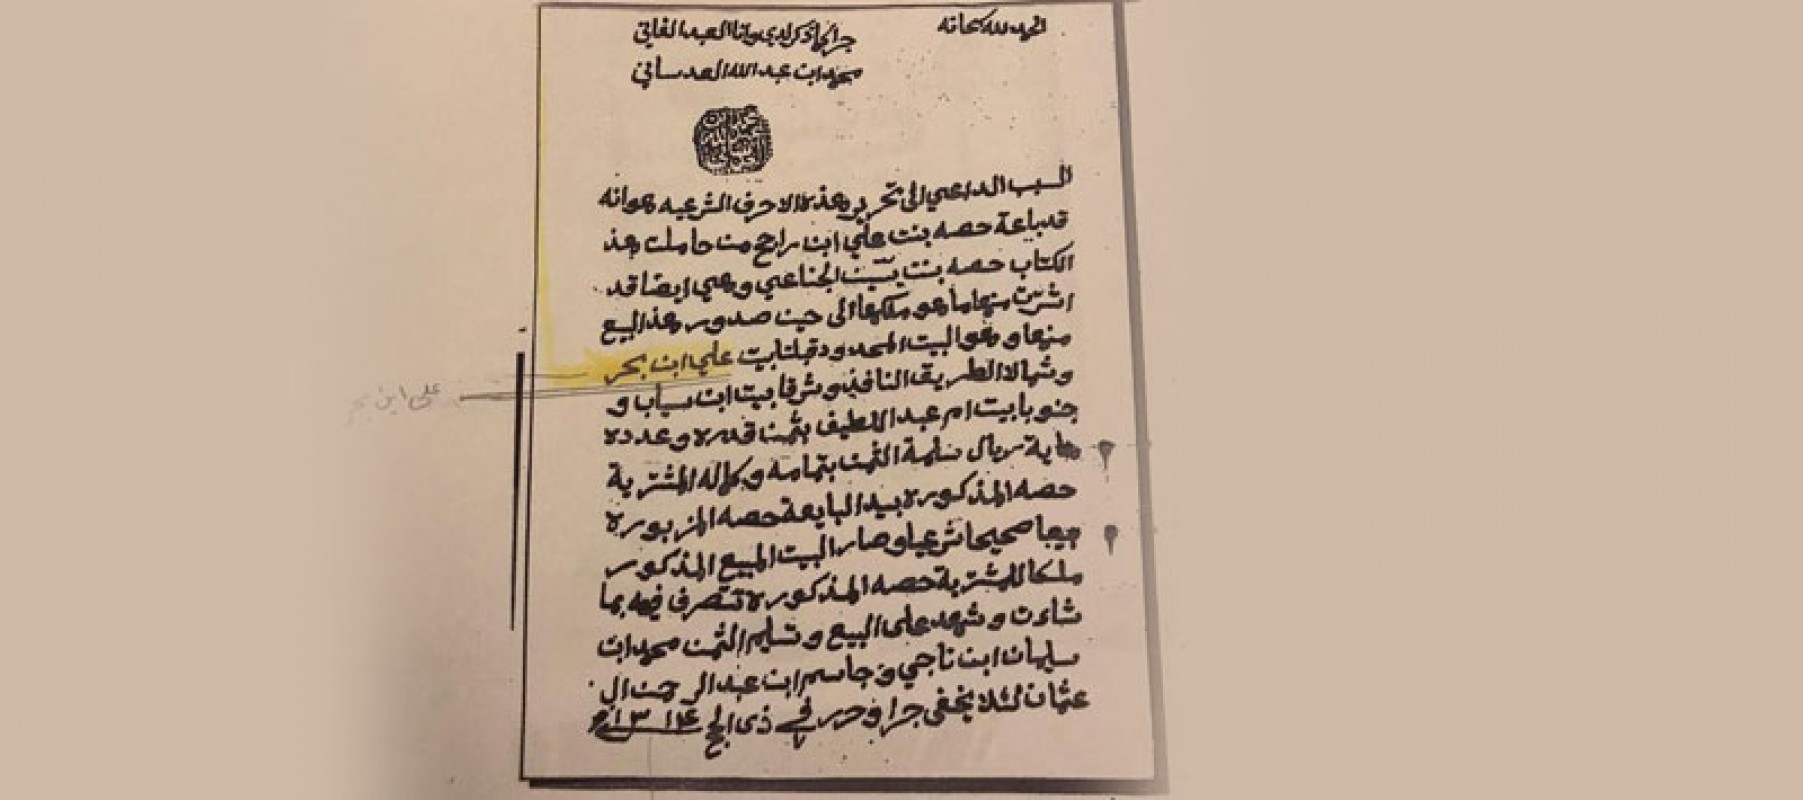 الحمد لله سبحانه
جرا ما ذكر لدي وانا العبد الفاني
محمد ابن عبد الله العدساني
السبب الداعي الى تحرير هذه الاحرف الشرعيه هو انه
قد باعة حصه بنت علي ابن راجح من حاملت هذ
الكتاب حصه بنت يسين الجناعي وهي ايضا قد
اشرت منها ما هو ملكها الى حين صدور هذ البيع
منها وهو البيت المحدود قبلتا بيت علي ابن بحر
وشمالا الطريق النافذ وشرقا بيت ابن سياب و
جنوبا بيت ام عبد اللطيف بثمن قدره وعدده
ماية ريال سلمة الثمن بتمامه وكماله المشترية
حصه المذكوره بيد البايعة حصه المزبوره
بيعا صحيحا شرعيا وصار البيت المبيع المذكور
ملكا للمشترية حصه المذكوره تتصرف فيه بما
شاءت وشهد على البيع وتسليم الثمن محمد ابن
سليمان ابن ناجي و جاسم ابن عبد الرحمن ال
عثمان لئلا يخفى جرا وحرر في ذي الحج ١٣١٤
علي ابن بحر